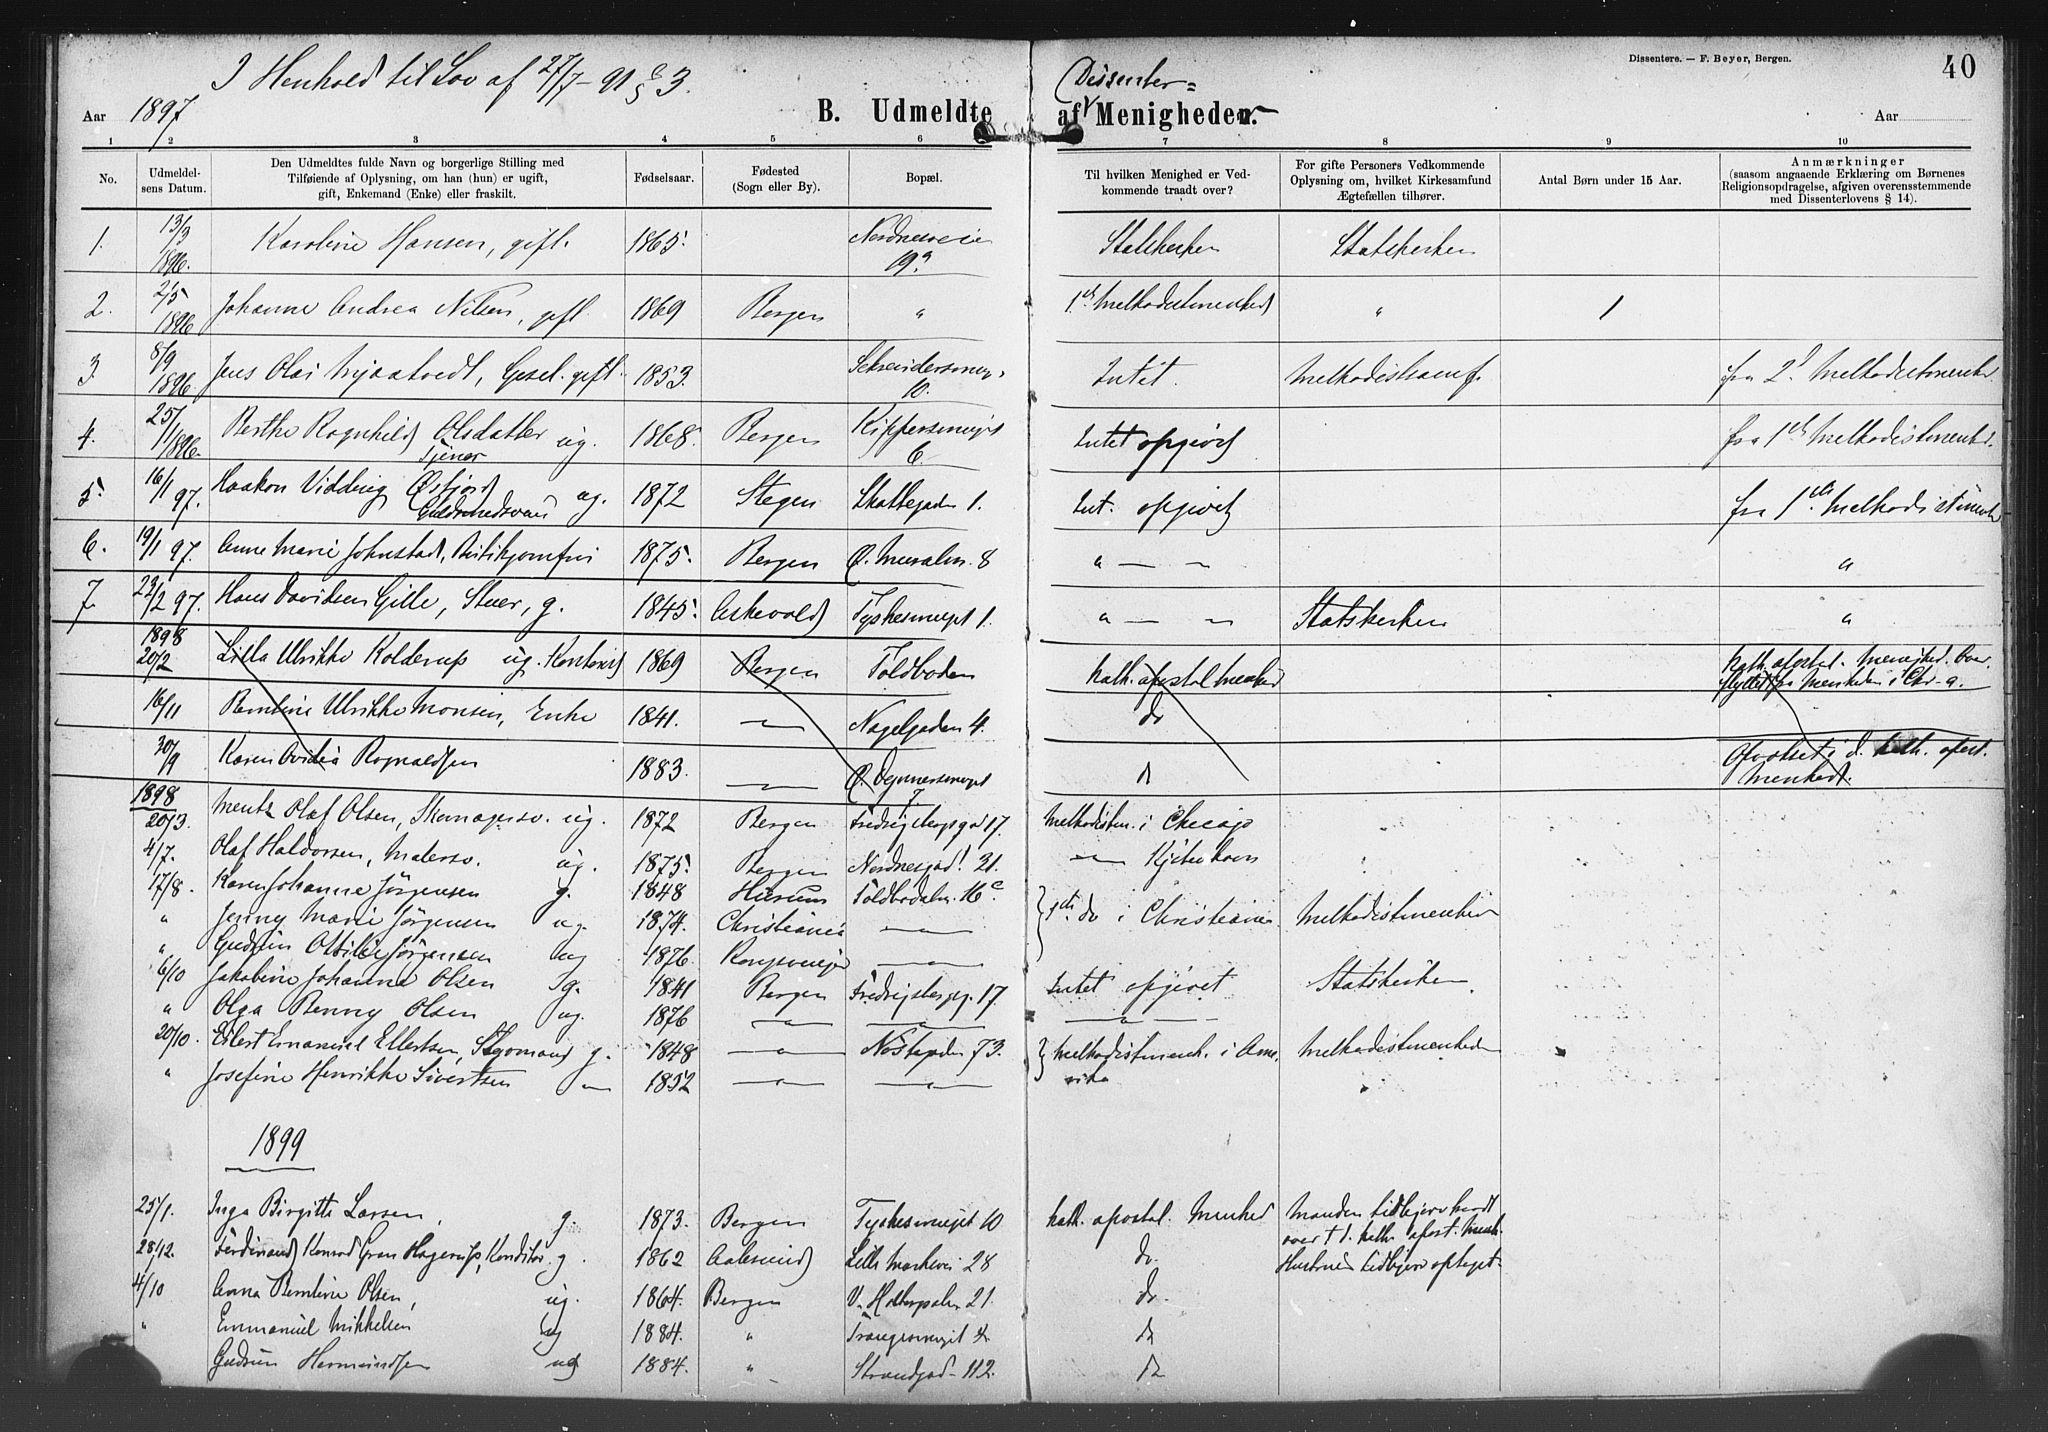 Dissentere. — F. Beyer, Bergen.
40
I Henhold til Lov af 27/7-91 § 3.
Dissenter=
Aar 1897
B. Udmeldte af Menigheden.
Aar
1 2 3 4 5 6 7 8 9 10
No.
Udmeldel-
sens Datum.
Den Udmeldtes fulde Navn og borgerlige Stilling med
Tilføiende af Oplysning, om han (hun) er ugift,
gift, Enkemand (Enke) eller fraskilt.
Fødselsaar.
Fødested
(Sogn eller By).
Bopæl.
Til hvilken Menighed er Ved-
kommende traadt over?
For gifte Personers Vedkommende
Oplysning om, hvilket Kirkesamfund
Ægtefællen tilhører.
Antal Børn under 15 Aar.
Anmærkninger
(saasom angaaende Erklæring om Børnenes
Religionsopdragelse, afgiven overensstemmende
med Dissenterlovens § 14).
1. 13/3 1896. Karoline Hansen, gift. 1865. Nordnesveien 19 Statskirken Statskirken
2. 2/5 1896 Johanne Andrea Nilsen, gift 1869 Bergen " 1ste Methodistmenhed " 1
3. 8/9 1896 Jens Olai gift. 1853. 10. Intet. Methodistsamf. fra 2d Methodistmenhd.
4. 25/11 1896. Berthe Ragnhild Olsdatter Tjener ug. 1868. Bergen Kippersmuget 6. Intet opgivet fra 1ste Methodistmenhd.
5. 16/1 97. Haakon Østfjord ug. 1872 Stegen Skottegaden 1. Int. opgivet fra 1ste Methodistmenhd
6. 19/1 97. Anne Marie Johnstad, Butikjomfru 1875. Bergen Ø. Muralm. 8 " — " "
7. 23/2 97. Hans Davidsen Gille, Stuer, g. 1845. Askevold Tyskesmuget 1. " — " Statskirken "
1898 20/2 Ulrikke Kolderup ug. Kontorist 1869 Bergen Toldboden kath. apostol menhed kath. apostol. Menighed. Over-
flyttet fra Menheden i Chr-a.
16/11 Bentine Ulrikke Monsen, Enke 1841. — " — Nagelgaden 4. do
30/9 Karen Ovidia Rognaldsen 1883. — " — Ø. Dynnersmuget 7 do Opvokset i d. kath. apost.
Menhed.
1898
20/3. Mentz Olaf Olsen, Skomagersv. ug. 1872 Bergen Fredrigsbergsgd 17. Methodistm. i Chicago
4/7. Olaf Haldorsen, Malersv. ug. 1875. Bergen Nordnesgad. 21. — " — Kjøbenhavn
17/8. Karen Johanne Jørgensen g. 1848 Hurum Toldbodalm. 16c. 1ste do i Christiania Methodistmenheden
" Jenny Marie Jørgensen ug. 1874. Christiania — " —
" Gudrun Ottilie Jørgensen ug 1876 Kongsvinger — " —
6/10 Jakobine Johanne Olsen g. 1841 Bergen Fredrigsbergsg. 17. Intet opgivet Statskirken.
" Olga Benny Olsen ug. 1876 — " — — " — — " —
20/10. Eilert Emanuel Ellertsen, g. 1848 — " — Nøstegaden 73. Methodistmenh. i Ame-
rika Methodistmenheden
" Josefine Henrikke Sivertsen — " — 1852 — " — — " — "
1899
25/1. Inga Birgitte Larsen, g. 1873. Bergen Tyskesmuget 10 kath. apostol. Menhed Manden tidligere
over t. d. kath. apost. Menh.
28/12. Ferdinand Konrad Gran Hagerup, Konditor g. 1862 Aalesund Lille Markevei 28 do. Hustruen tidligere optaget.
4/10 Anna Bentine Olsen, ug. 1864. Bergen V. Holbergsalm 21. do.
" Emmanuel Mikkelsen ug 1884. " do
Gudrun Hermundsen ug 1884. " Strandgad- 112. do